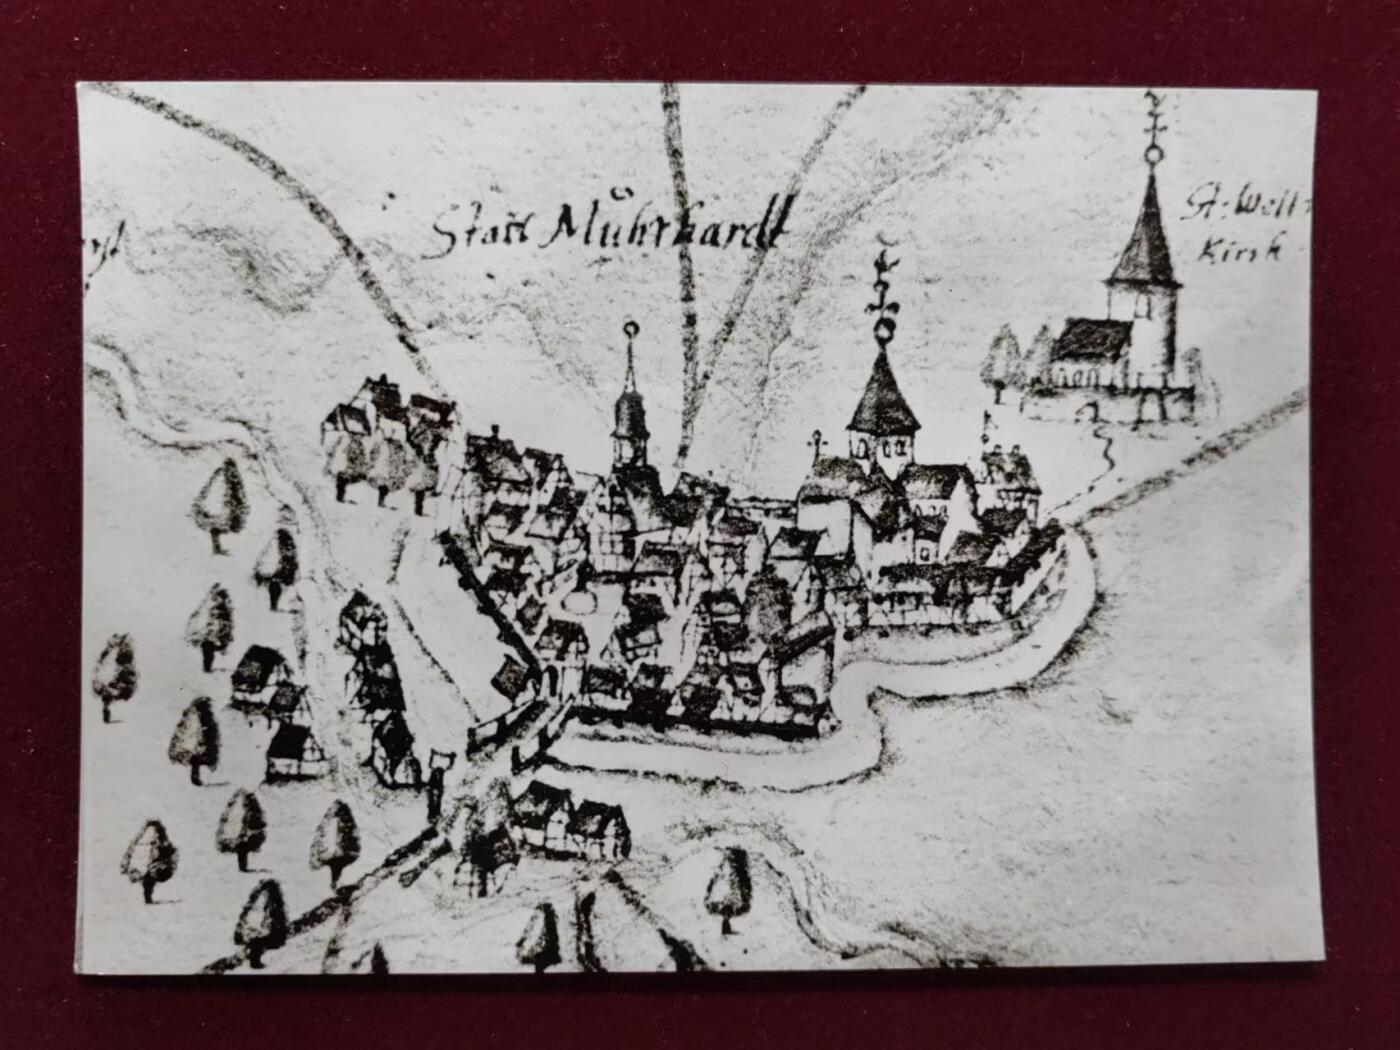 Statt Můhrhardt
St: Walt
Kirch